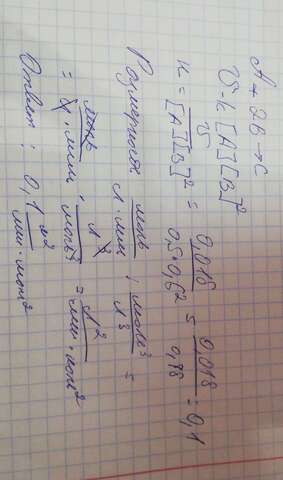 A + 2B → C
V = k [A][B]²
k = V / [A][B]² = 0,018 / 0,5·0,6² = 0,018 / 0,18 = 0,1
Размерность моль / л·мин : моль³ / л³ =
= моль / л·мин · л³ / моль³ = л² / мин·моль²
Ответ: 0,1 л² / мин·моль²